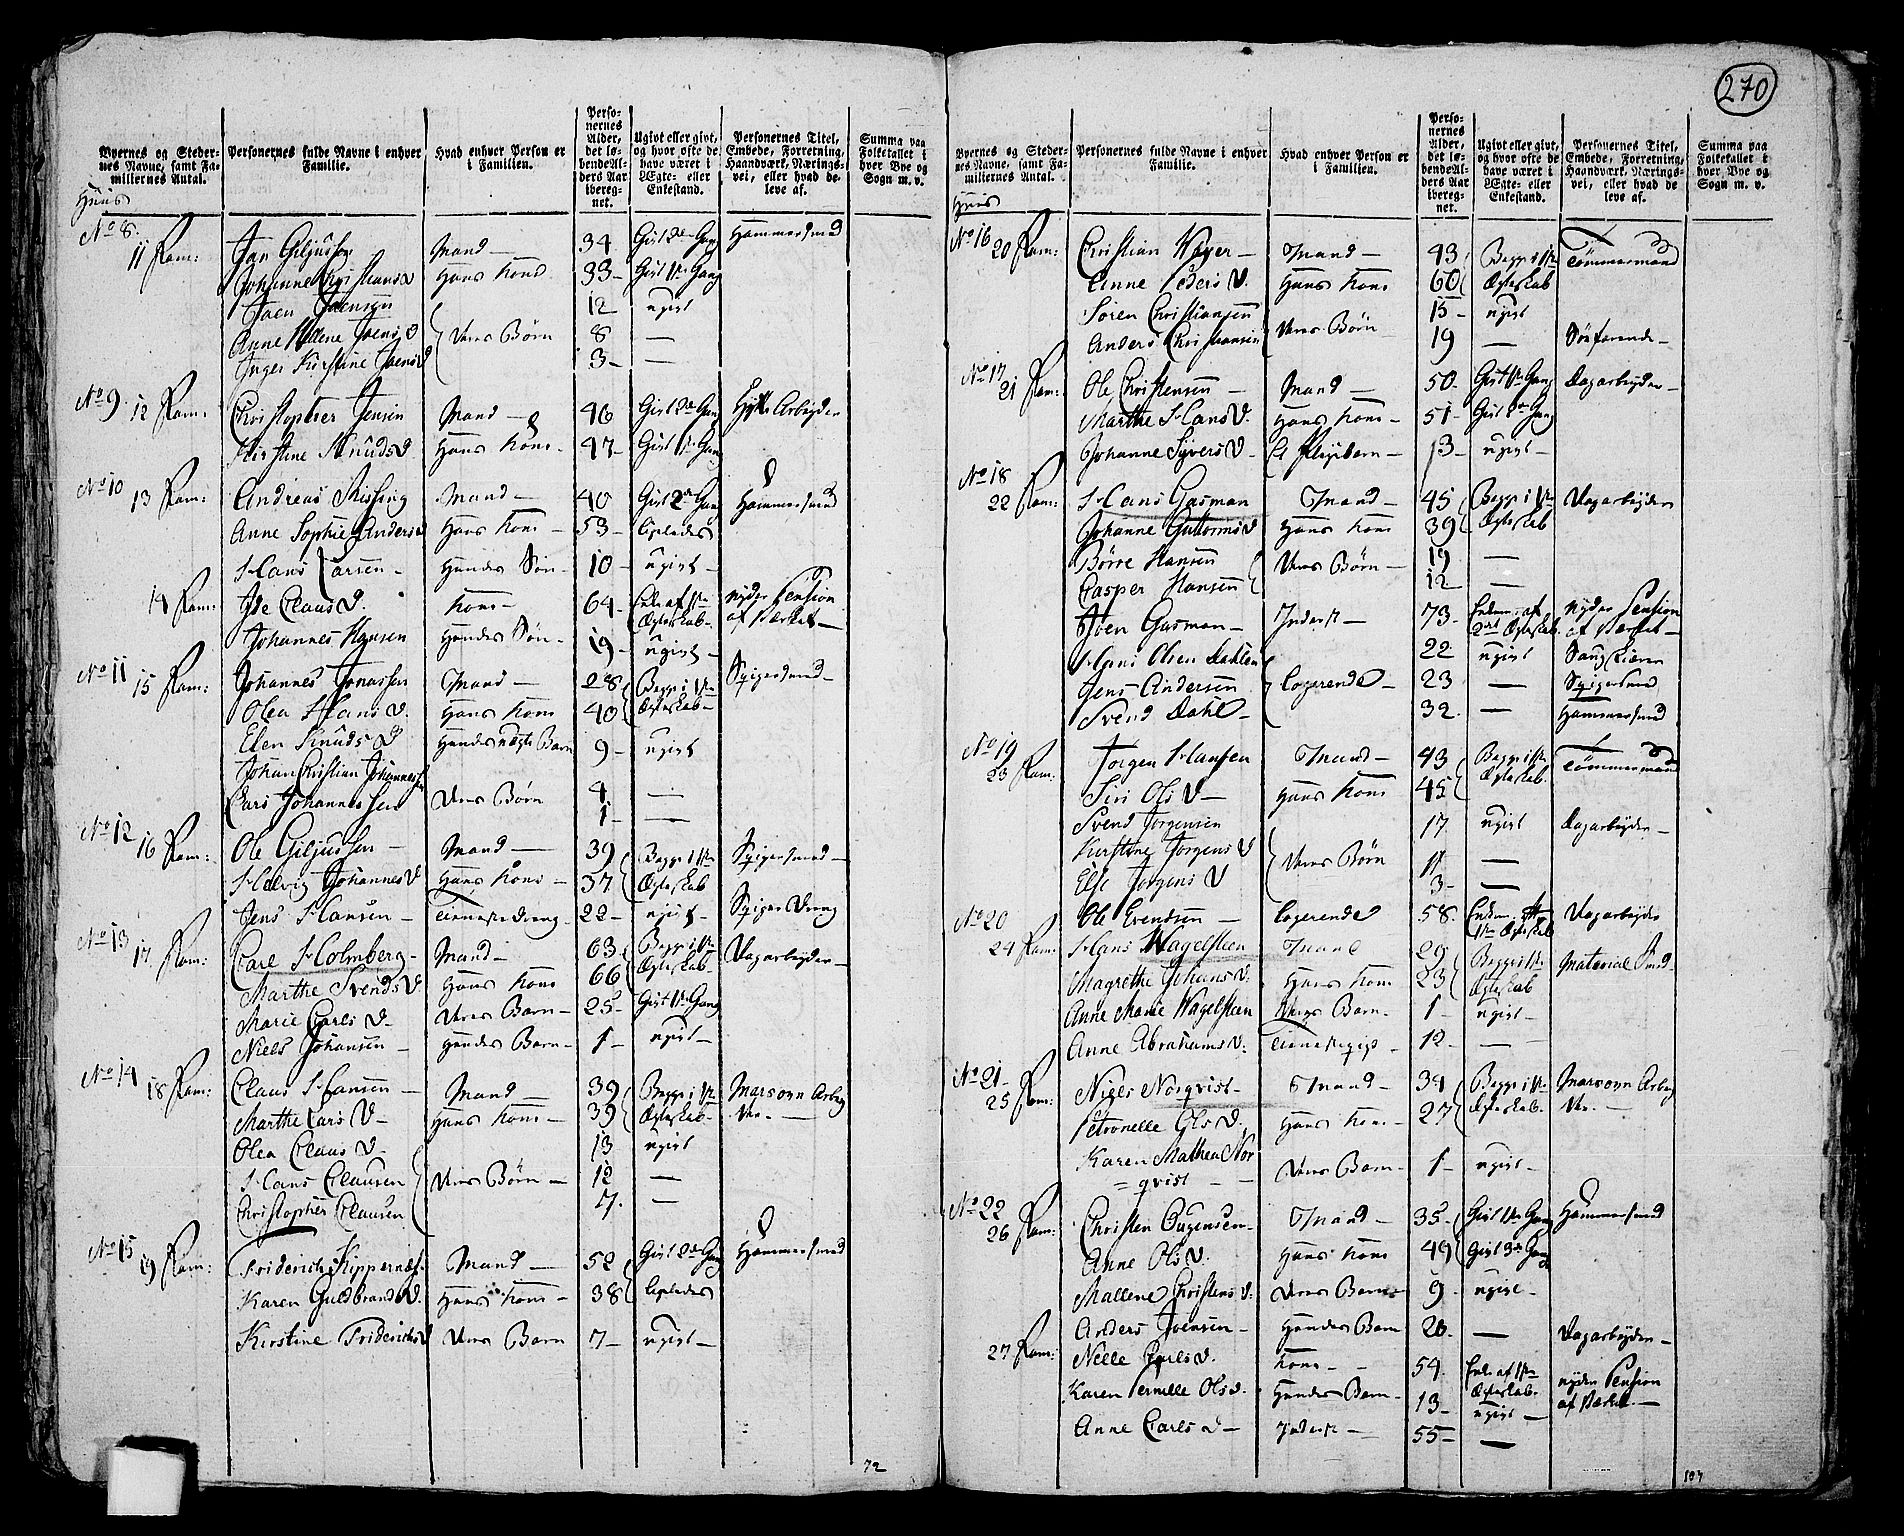 270
Byernes og Stedernes Navne, samt Familliernes Antal.
Personernes fulde Navne i enhver Familie.
Hvad enhver Person er i Familien.
Personernes Alder, det løbende Alders Aar iberegnet.
Ugivt eller givt, og hvor ofte de have været i Ægte- eller Enkestand.
Personernes Titel, Embede, Forretning, Haandværk, Næringsvei, eller hvad de leve af.
Summa paa Folketallet i hver Bye og Sogn m. v.
Huus
No 8. 11 Fam: Jan Giljussen Mand — 34 Gift 2de Gang Hammersmed
Johanne Christiansd Hans Kone 33 — Gift 1te Gang
Joen Joensen 12 ugivt
Anne Helene Joens D Deres Børn 8 —
Inger Kirstine Joensd 3 — —
No 9. 12 Fam: Christopher Jensen Mand — 46 Gift 2de Gang Hytte Arbeyder
Kirstine Knudsd Hans Kone 47 — Gift 1te Gang
No 10 13 Fam: Andreas Mand — 40 Gift 2de Gang Hammersmed
Anne Sophie Andersd Hans Kone — 53 — ligeledes
Hans Larsen — Hendes Søn — 10 — ugivt —
14 Fam: Ide Claus D. Kone — 64 — Enke af 1te Ægteskab — nyder Pension af Værket —
Johannes Hansen Hendes Søn — 19 — ugivt —
No 11 15 Fam: Johannes Jonassen Mand — 28 Begge i 1te Ægteskab — Spigersmed —
Olea Hans D. Hans Kone 40
Elen Knuds D Hendes uægte Barn 9 — ugivt
Johan Christian Johannessen
Lars Johannessen Deres Børn 4 —
1 — —
No 12 16 Fam: Ole Giljussen — Mand — 39 Begge i 1te Ægteskab Spigersmed —
Helvig Johannes D Hans Kone — 37
Jens Hansen — Tienestedreng — 22 — ugivt — Spiger Dreng
No 13 17 Fam: Carl Holmberg — Mand — 63 Begge i 1te Ægteskab — Dagarbeyder —
Marthe Svends D Hans Kone 66
Marie Carls D — Deres Barn — 25 — Gift 1te Gang
Niels Johansen — Hendes Barn — 1 — ugivt —
No 14 18 Fam: Claus Hansen — Mand 39 Begge i 1te Ægteskab — Masovn Arbeyder —
Marthe Lars D — Hans Kone — 39
Olea Claus D — 13 ugivt
Hans Clausen Deres Børn — 12 —
Christopher Clausen 7. —
No 15 19 Fam: Friderich Kippernæs. Mand — 52 Gift 2de Gang Hammersmed
Karen Guldbrands D. Hans Kone — 38 ligeledes
Kirstine Friderichs D Deres Barn 7 — ugivt —
72
Byernes og Stedernes Navne, samt Familliernes Antal.
Personernes fulde Navne i enhver Familie.
Hvad enhver Person er i Familien.
Personernes Alder, det løbende Alders Aar iberegnet.
Ugivt eller givt, og hvor ofte de have været i Ægte- eller Enkestand.
Personernes Titel, Embede, Forretning, Haandværk, Næringsvei, eller hvad de leve af.
Summa paa Folketallet i hver Bye og Sogn m. v.
Huus
No 16 20 Fam: Christian — Mand — 43 Begge i 1te Ægteskab Tömmermand
Anne Peders D. Hans Kone 60
Søren Christiansen 15 — ugivt
Anders Christiansen Deres Børn 19 — Söefarende —
No 17 21 Fam: Ole Christensen — Mand — 50 — Gift 1te Gang Dagarbeyder —
Marthe Hans D. Hans Kone — 51 — Gift 2de Gang
Johanne Syvers D — Et Pleyebarn — 13 — ugivt —
No 18 22 Fam: Hans Gasman Mand — 45 Begge i 1te Ægteskab Dagarbeyder
Johanne Guttorms D Hans Kone 39
Börre Hansen Deres Børn — 19 —
Casper Hansen 12 —
Joen Gasman — Inderst — 73 — Enkem. af 2det Ægteskab. nyder Pension af Værket —
Hans Olsen Dahlen 22 ugivt Saug
Jens Andersen Logerende — 23 — Spigersmed
Svend Dahl — 32. — Hammersmed
No 19 23 Fam: Jörgen Hansen Mand — 43 Begge i 1te Ægteskab. Tömmermand
Siri Ols D — Hans Kone 45
Svend Jörgensen 17. ugivt Dagarbeyder —
Kirstine Jörgens D Deres Børn 11 —
Else Jörgens D 3 — —
No 20 Ole Evendsen — Logerende 58. Enkem. 1te Ægteskab Dagarbeyder
24 Fam: Hans Wagelsteen Mand 29 Begge i 1te Ægteskab Material Smed —
Magrethe Johans D. Hans Kone 23
Anne Marie Wagelsteen Deres Barn — 1 — ugivt —
Anne Abrahams D. Tienestepige — 12 — —
No 21 — 25 Fam: Niels Norqvist — Mand — 34 Begge i 1te Ægteskab — Masovn Arbeyder —
Petronelle Ols D. Hans Kone — 27
Karen Mathea Nor
= qvist — Deres Barn — 1 — ugivt —
No 22 26 Fam: Christen — Mand — 35 — Gift 1te Gang Hammersmed
Anne Ols D. Hans Kone 49 Gift 3de Gang
Mallene Christens D. Deres Barn 9 — ugivt —
Anders Joensen — Hendes Barn 20. — Dagarbeyder —
27 Fam: Nelle Carls D. Kone — 54. Enke af 1te Ægteskab. nyder Pension af Værket —
Karen Pernille Ols D. Hendes Barn — 13 — ugivt —
Anne Carls D — Inderst — 55 — —
107